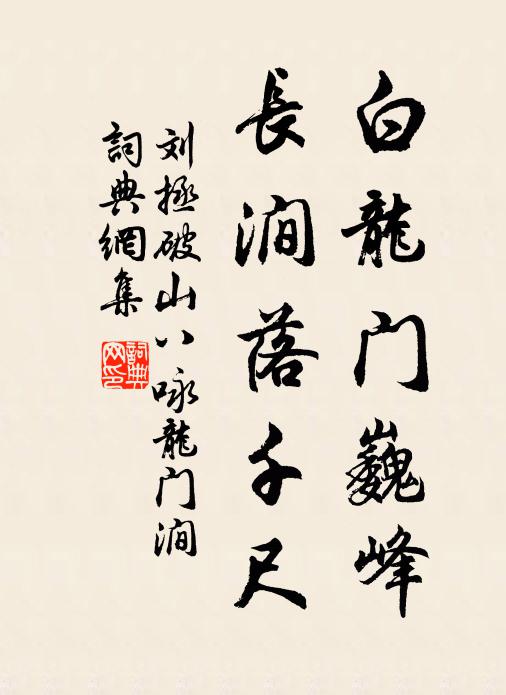 白龍门巍峰
長澗落千尺
刘拯破山八咏龍门澗
詞典網集
詞典网印